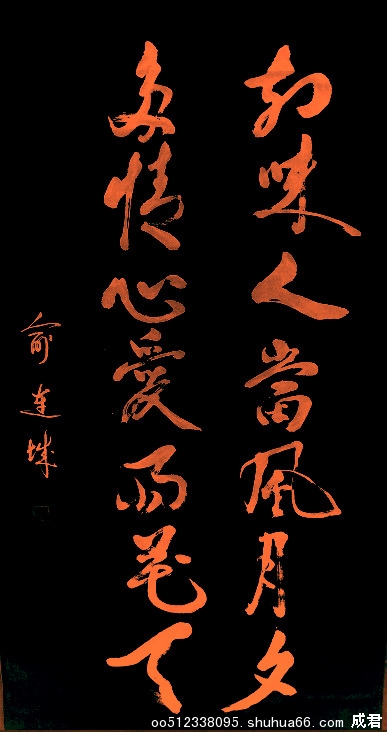 知味人當風月夕
多情心愛雨花天
俞連城
oo512338095. shuhua66. com 成君